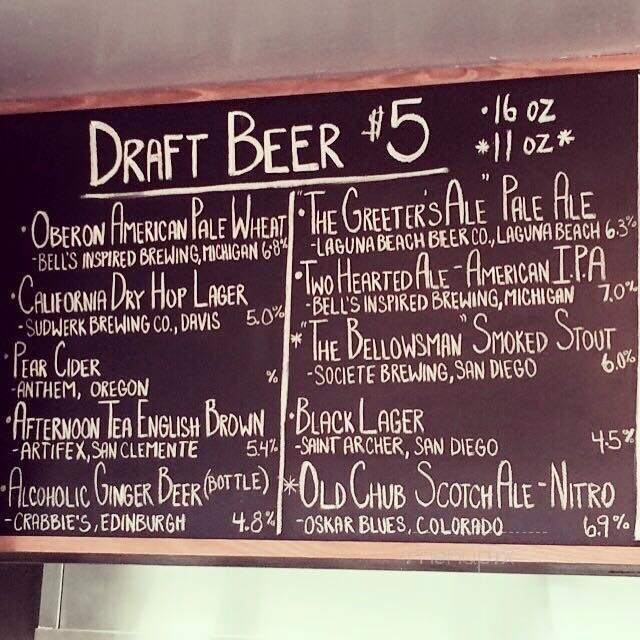 DRAFT BEER $5
•16 OZ
*11 OZ*
•OBERON AMERICAN PALE WHEAT
-BELL'S INSPIRED BREWING, MICHIGAN 6.8%
•CALIFORNIA DRY HOP LAGER
-SUDWERK BREWING CO., DAVIS 5.0%
•PEAR CIDER
-ANTHEM, OREGON %
•AFTERNOON TEA ENGLISH BROWN
-ARTIFEX, SAN CLEMENTE 5.4%
•ALCOHOLIC GINGER BEER (BOTTLE)
-CRABBIE'S, EDINBURGH 4.8%
•"THE GREETER'S ALE" PALE ALE
-LAGUNA BEACH BEER CO., LAGUNA BEACH 6.3%
•TWO HEARTED ALE-AMERICAN I.P.A
-BELL'S INSPIRED BREWING, MICHIGAN 7.0%
*"THE BELLOWSMAN" SMOKED STOUT
-SOCIETE BREWING, SAN DIEGO 6.0%
•BLACK LAGER
-SAINT ARCHER, SAN DIEGO 4.5%
*OLD CHUB SCOTCH ALE-NITRO
-OSKAR BLUES, COLORADO 6.9%